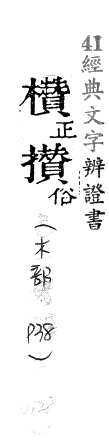 41經典文字辨證書
欑正攢俗
(木部
P38)